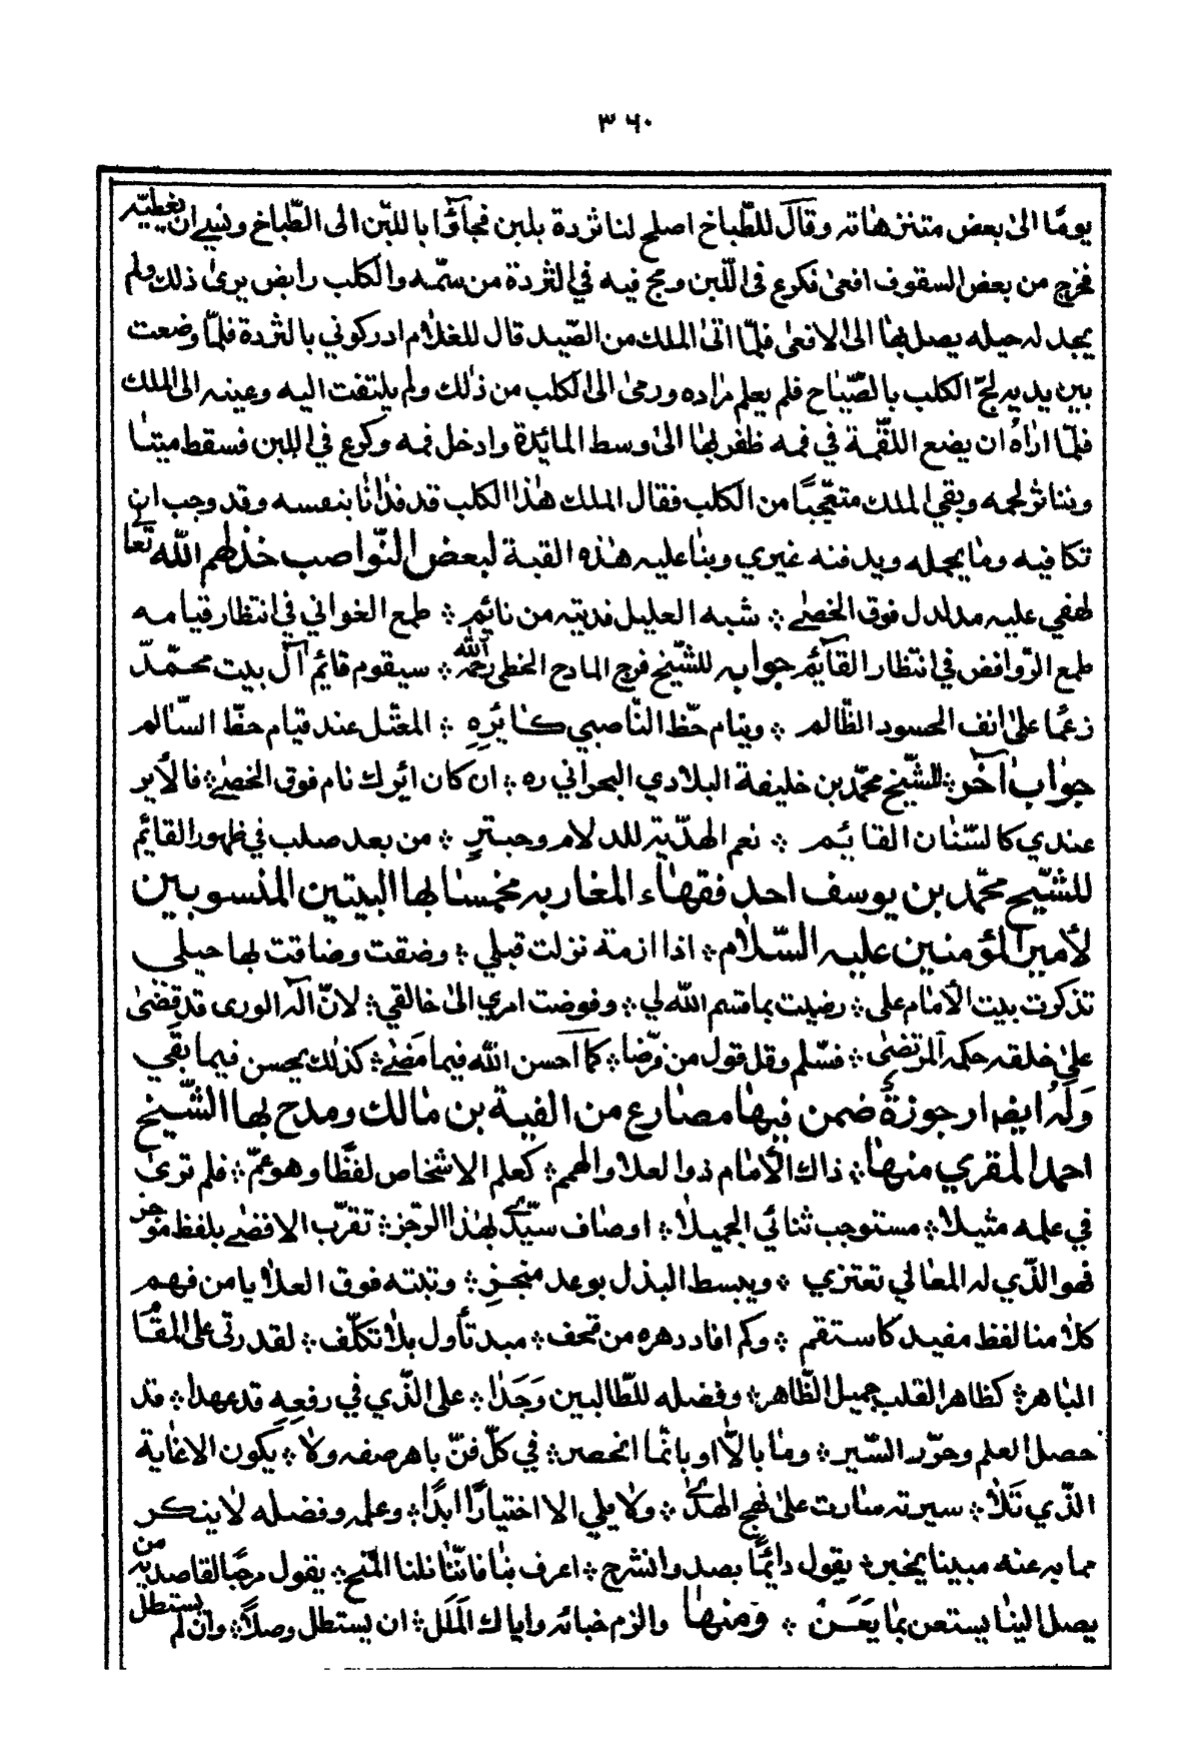 ٣٦٠
يومًا الى بعض متنزهاته وقال للطّباخ اصلح لنا ثردة بلبن فجآؤا باللبن الى الطّباخ ونسي ان يغطيّه
فخرج من بعض السقوف افعى فكرع فى اللّبن ومج فيه في الثردة من سمّه والكلب رابض يرى ذلك ولم
يجد له حيله يصل بها الى الافعى فلمّا اتى الملك من الصّيد قال للغلام ادركوني بالثردة فلمّا وضعت
بين يديه لجّ الكلب بالصّياح فلم يعلم مراده ورمى الى الكلب من ذلك ولم يلتفت اليه وعينه الى الملك
فلمّا اراه ان يضع اللقمة في فمه ظفر بها الى وسط المائدة وادخل فمه وكرع في اللبن فسقط ميتا
وتناثر لحمه وبقي الملك متعجّبًا من الكلب فقال الملك هذا الكلب قد فدانا بنفسه وقد وجب ان
تكافيه وما يحمله ويدفنه غيري وبنا عليه هذه القبة لبعض النّواصب خذلهم الله تعا
لهفي عليه مدلدل فوق الخصى ۞ شبه العليل فديته من نائم ۞ طمع الغواني في انتظار قيامه
طمع الرّوافض في انتظار القآئم جوابه للشّيخ فرج المادح الخطى رحمه الله ۞ سيقوم قائم آل بيت محمّد
زعمًا على انف الحسود الظّالم ۞ وينام حظ النّاصبي كايره ۞ المعتل عند قيام حظّ السّالم
جواب آخر للشّيخ محمّد بن خليفة البلادي البحراني ره ۞ ان كان ايرك نام فوق الخصى ۞ فالأير
عندي كالسّنان القائم ۞ نعم الهدّية للدلام وحبتر ۞ من بعد صلب في ظهور القائم
للشّيخ محمّد بن يوسف احد فقهاء المغاربه مخمسا بها البيتين المنسوبين
لأمير المؤمنين عليه السّلام ۞ اذا ازمة نزلت قبلي ۞ وضقت وضاقت بها حيلي
تذكرت بيت الأمام علي ۞ رضيت بما قسم الله لي ۞ وفوضت امري الى خالقي ۞ لانّ اله الورى قد قضى
على خلقه حكمه المرتضى ۞ فسّلم وقل قول من فرّضا ۞ كما احسن الله فيما مضى ۞ كذلك يحسن فيما بقي
وله ايضا ارجوزة ضمن فيها مصارع من الفية بن مالك ومدح بها الشّيخ
احمد المقري منها ۞ ذاك الأمام ذوا لعلا والهمم ۞ كعلم الاشخاص لفظًا وهو عمّ ۞ فلم ترى
في علمه مثيلا ۞ مستوجب ثنائي الجميلا ۞ اوصاف سيّدي بهذا الرّجز ۞ تقرّب الاقصى بلفظ موجز
فهو الذّي له المعالي تعتزي ۞ ويبسط البذل بوعد منجز ۞ رتبته فوق العلا يا من فهم
كلامنا لفظ مفيد كاستقم ۞ وكم افاد رهره من تحف ۞ مبد تأول بلا تكلّف ۞ لقد رقى على المقا
الباهر ۞ كظاهر القلب جميل الظّاهر ۞ وفضله للطّالبين وجدا ۞ على الذّي في رفعه قد عهدا ۞ قد
حصل العلم وحرّر السّير ۞ وما بالاّ او بانّما انحصر ۞ في كلّ فنّ باهر صفه ولا ۞ يكون الا غاية
الذّي تلا ۞ سيرته سارت على نهج الهدى ۞ ولا يلي الا اختيارًا ابدًا ۞ وعلمه وفضله لا ينكر
مما به عنه مبينا يخبر ۞ يقول دائمًا بصد وانشرح ۞ اعرف بنا فانّنا نلنا المنح ۞ يقول مرحبًا لقاصديه من
يصل الينا يستعن بنا يعن ۞ ومنها والزم خبائه واياك الملل ۞ ان يستطل وصلاً ۞ وان لم يستطل